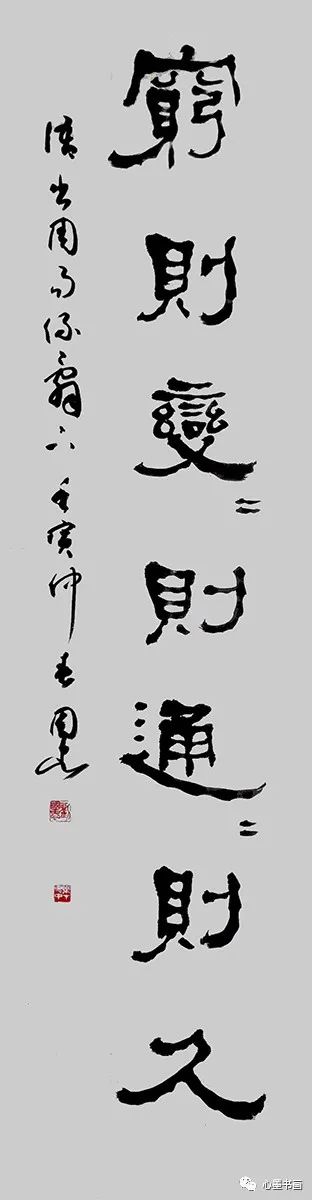 窮則變〻則通〻則久
語出周易係辭下 壬寅仲春
心墨书画